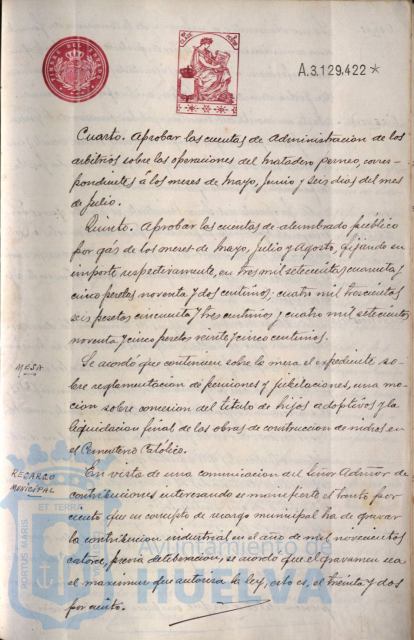 A.3.129.422*
Cuarto. Aprobar las cuentas de Administracion de los
arbitrios sobre las operaciones del Matadero perneo, corres-
pondientes á los meses de Mayo, Junio y seis dias del mes
de Julio.
Quinto. Aprobar las cuentas de alumbrado público
por gás de los meses de Mayo, Julio y Agosto, fijando su
importe respectivamente, en tres mil setecientas cuarenta y
cinco pesetas noventa y dos centimos; cuatro mil trescientas
seis pesetas cincuenta y tres centimos y cuatro mil setecientas
noventa y cinco pesetas veinte y cinco centimos.
MESA
Se acordó que continuen sobre la mesa el expediente so-
bre reglamentacion de pensiones y jubilaciones, una mo-
cion sobre concesion del titulo de hijos adoptivos y la
liquidacion final de las obras de construccion de nichos en
el Cementerio Católico.
RECARGO
MUNICIPAL
En vista de una comunicacion del Señor Admor de
contribuciones interesando se manifieste el tanto por
ciento que en concepto de recargo municipal ha de gravar
la contribucion industrial en el año de mil novecientos
catorce, previa deliberacion, se acordó que el gravamen sea
el maximun que autoriza la ley, esto es, el treinta y dos
por ciento.
PORTUS MARIS
ET TERRA
Ayuntamiento de
HUELVA